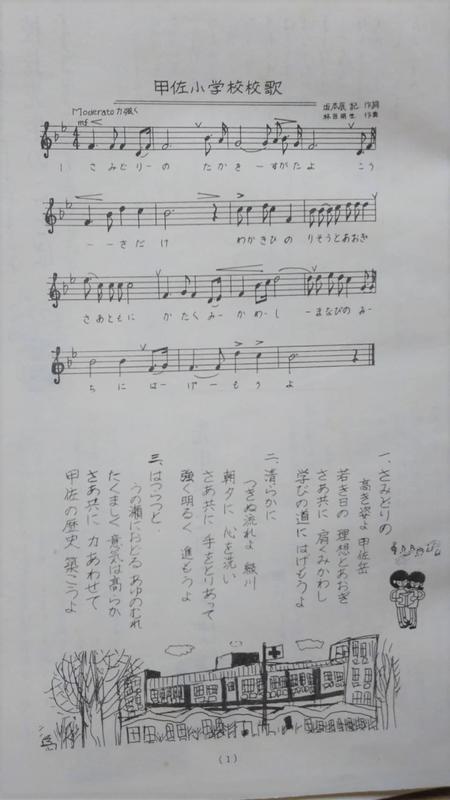 甲佐小学校校歌
Moderato 力強く
作詞
作曲
mf
1. さみどりーの たかきーすがたよ こう
ーーさだけ わかきひの りそうとあおぎ
さあともに かたくみーかわーし ーまなびのみー
ちにはーげーもうよ
一、さみどりの
高き姿よ 甲佐岳
若き日の 理想とあおぎ
さあ共に 肩くみかわし
学びの道に はげもうよ
二、清らかに
つきぬ流れよ 緑川
朝夕に 心を洗い
さあ共に 手をとりあって
強く明るく 進もうよ
三、はつらつと
うの瀬におどる あゆのむれ
たくましく 意気は高らか
さあ共に 力あわせて
甲佐の歴史 築こうよ
(1)